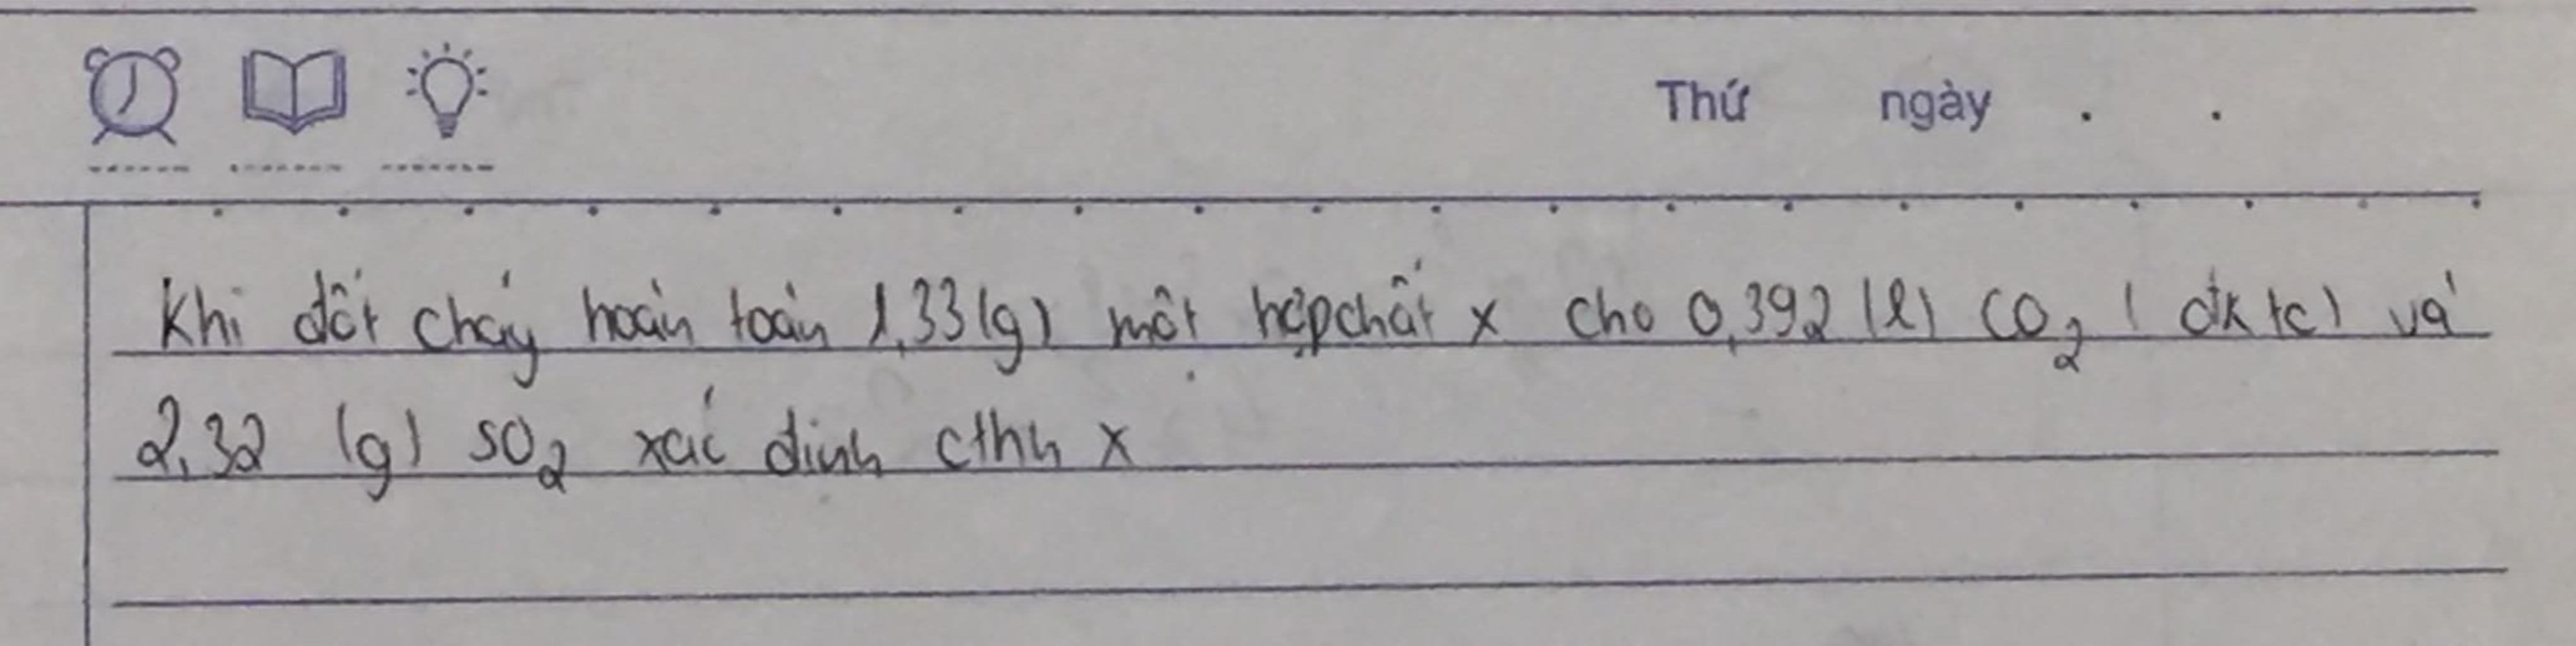 Thứ ngày . .
Khi đốt cháy hoàn toàn 1,33 (g) một hợp chất x cho 0,392 (l) CO₂ ( đktc) và
2,32 (g) SO₂ xác định cthh x